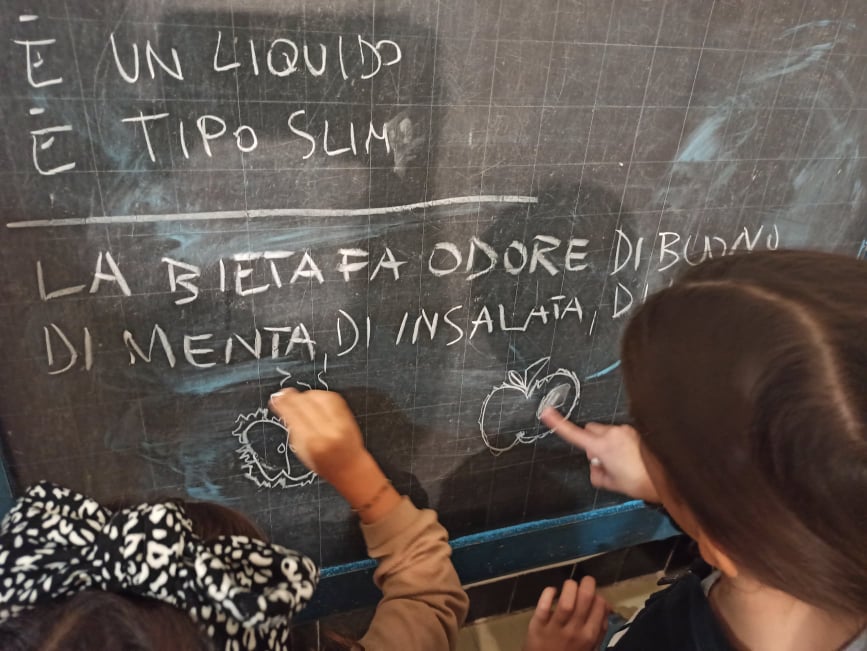 È UN LIQUIDO
È TIPO SLIM
LA BIETA FA ODORE DI BUONO
DI MENTA, DI INSALATA,